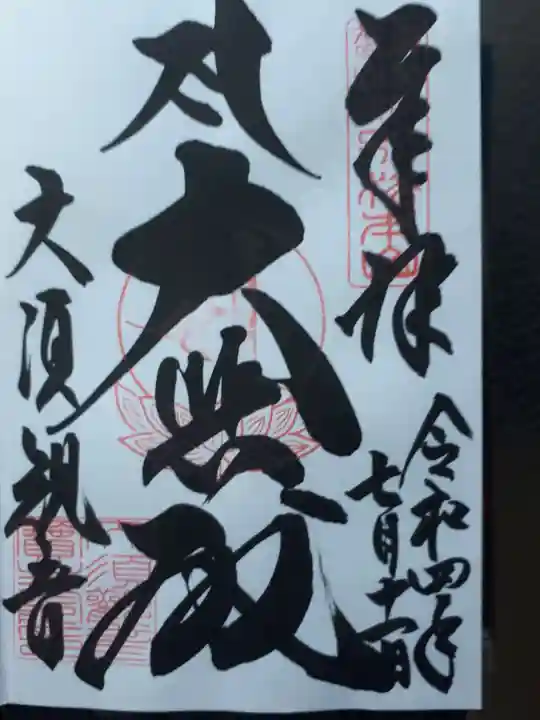 奉拝
令和四年
七月十一日
大悲殿
大須観音